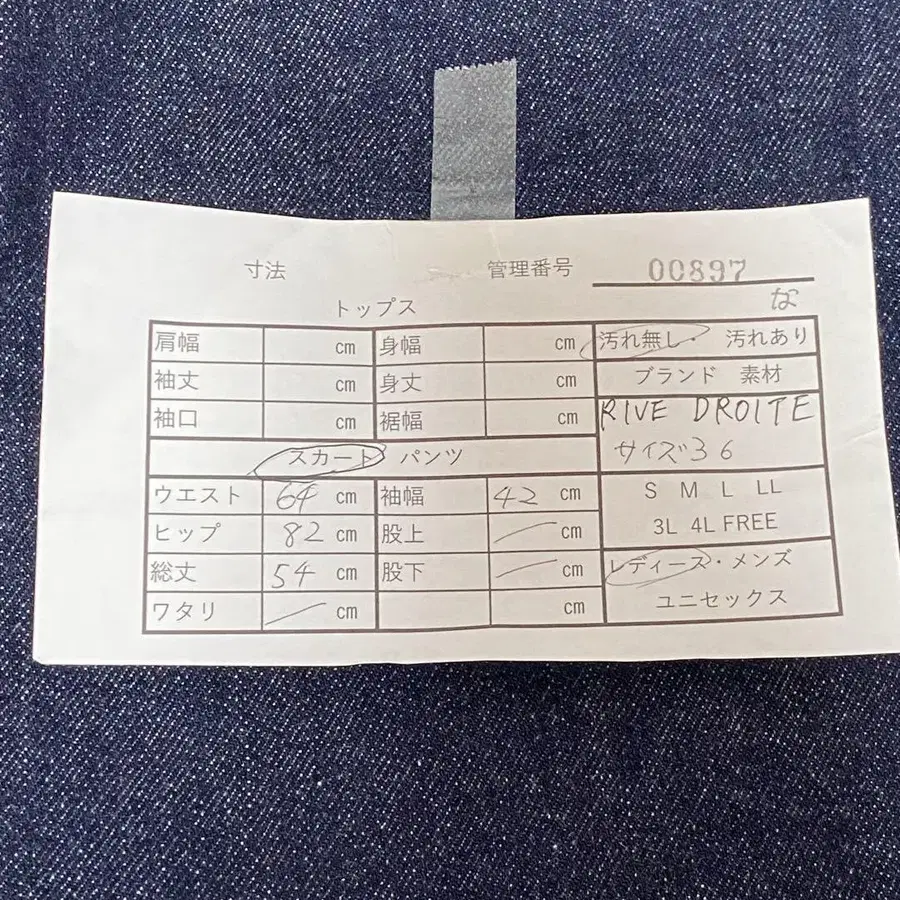 寸法 管理番号 00897
トップス な
肩幅 cm 身幅 cm 汚れ無し・ 汚れあり
袖丈 cm 身丈 cm ブランド 素材
袖口 cm 裾幅 cm RIVE DROITE
スカート パンツ サイズ36
ウエスト 64 cm 袖幅 42 cm S M L LL
ヒップ 82 cm 股上 cm 3L 4L FREE
総丈 54 cm 股下 cm レディース・メンズ
ワタリ cm cm ユニセックス